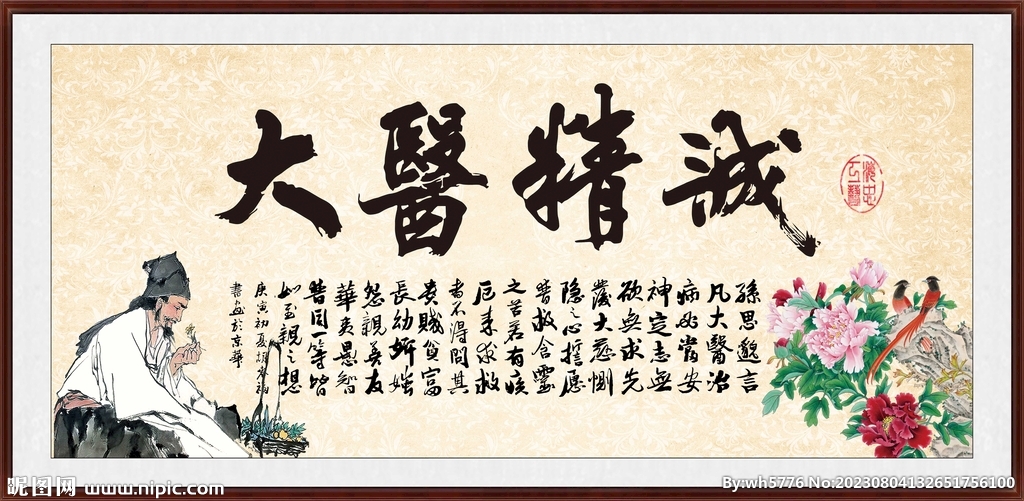 大醫精誠
孫思邈言
凡大醫治
病必當安
神定志無
欲無求先
發大慈惻
隱之心誓愿
普救含靈
之苦若有疾
厄来求救
者不得問其
貴賤貧富
長幼妍媸
怨親善友
華夷愚智
普同一等皆
如至親之想
庚寅初夏
書画於京華
昵图网 www.nipic.com
By:wh5776 No:20230804132651756100